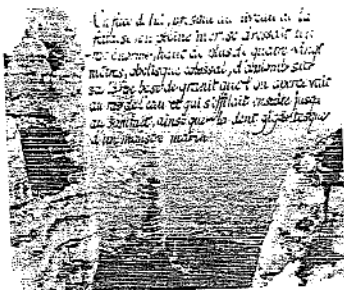 face à lui, un peu au niveau de la
falaise, en pleine mer se dressait un
roc énorme, haut de plus de quatre-vingt
mètres, obélisque colossal, d'aplomb sur
sa large base de granit que l'on apercevait
au ras de l'eau et qui s'effilait ensuite jusqu'
au sommet, ainsi que la dent gigantesque
d'un monstre marin